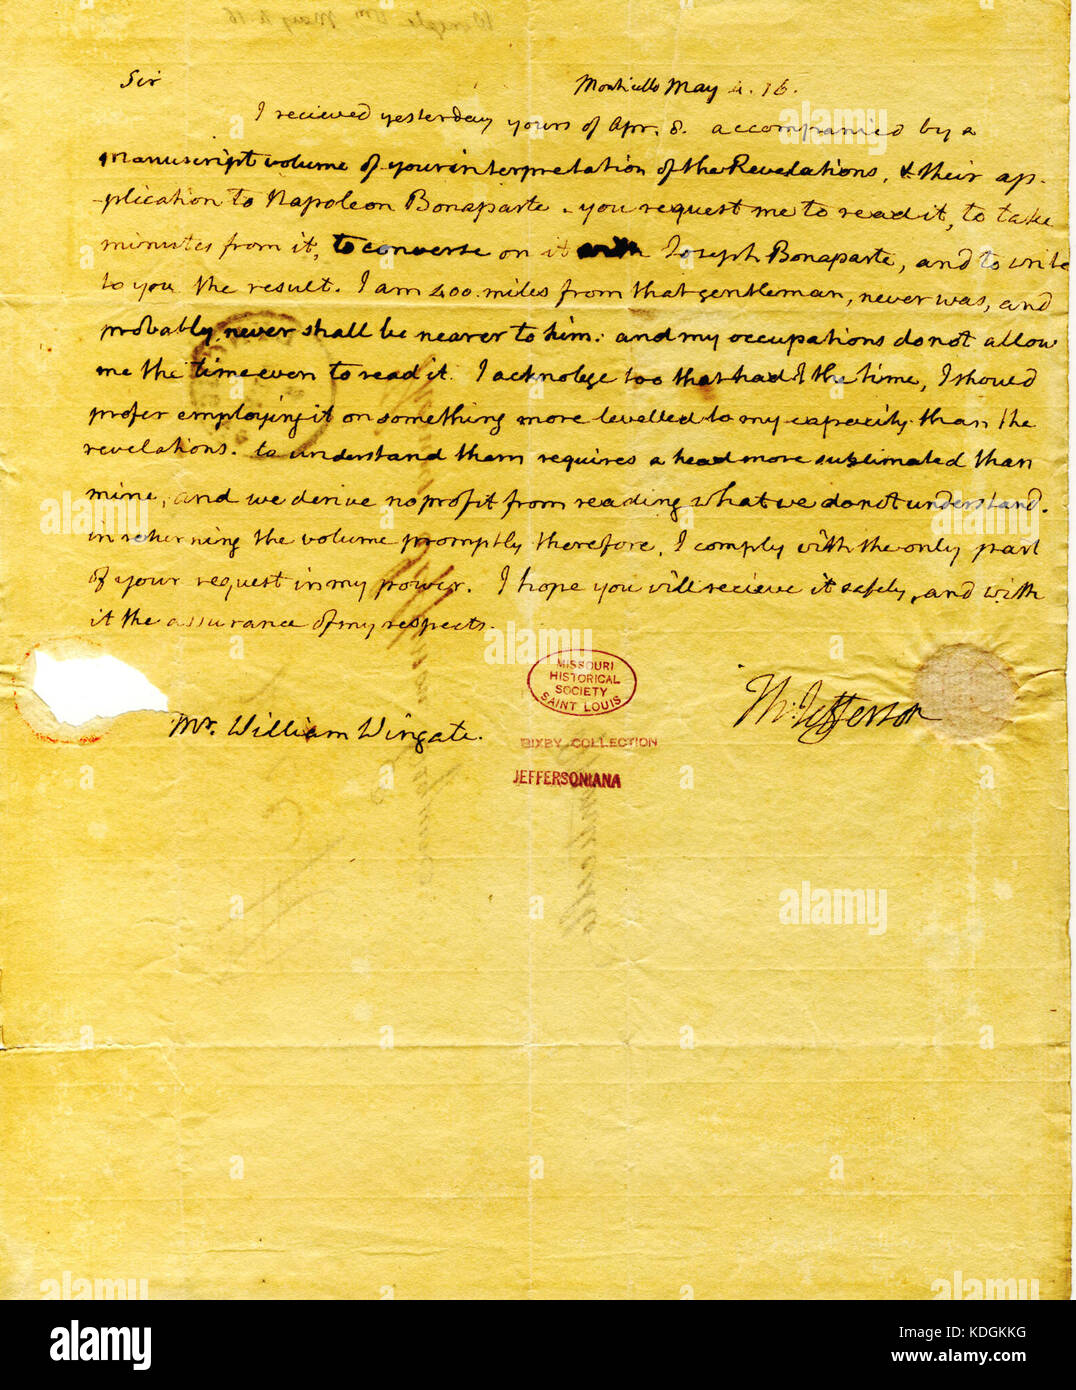 Sir
Monticello May 4. 16.
I recieved yesterday yours of Apr. 8. accompanied by a
manuscript volume of your interpretation of the Revelations, & their ap-
-plication to Napoleon Bonaparte. you request me to read it, to take
minutes from it, to converse on it with Joseph Bonaparte, and to write
to you the result. I am 400. miles from that gentleman, never was, and
probably never shall be nearer to him: and my occupations do not allow
me the time even to read it. I acknolege too that had I the time, I should
prefer employing it on something more levelled to my capacity than the
revelations. to understand them requires a head more sublimated than
mine, and we derive no profit from reading what we do not understand.
in returning the volume promptly therefore, I comply with the only part
of your request in my power. I hope you will recieve it safely, and with
it the assurance of my respects.
Th: Jefferson
Mr. William Wingate.
MISSOURI
HISTORICAL
SOCIETY
SAINT LOUIS
BIXBY COLLECTION
JEFFERSONIANA
alamy
alamy
alamy
alamy
alamy
alamy
alamy
alamy
alamy
alamy
alamy
Image ID: KDGKKG
www.alamy.com